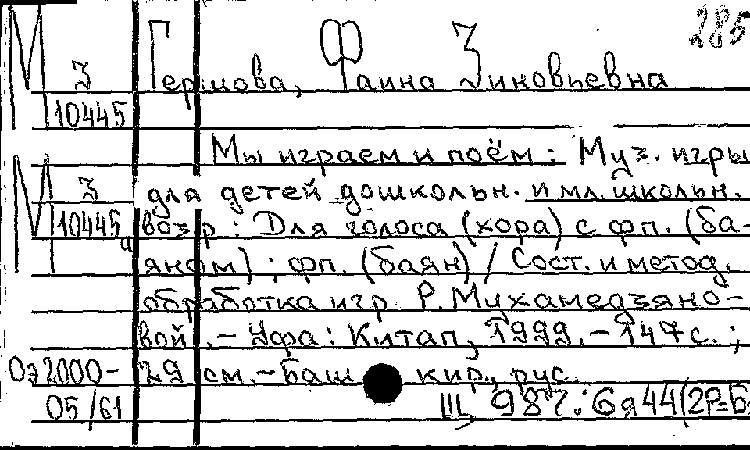 285
М З Гершова, Фаина Зиновьевна
10445
Мы играем и поём: Муз. игры
М З для детей дошкольн. и мл. школьн.
10445 возр.: Для голоса (хора) с фп. (ба-
яном); фп. (баян) / Сост. и метод.
обработка игр. Р. Мухамедзяно-
вой. – Уфа: Китап, 1999. – 147 с.;
Оэ2000- 29 см. – Баш. кир., рус.
05/61 Щ 987.:6я44(2Р=Б